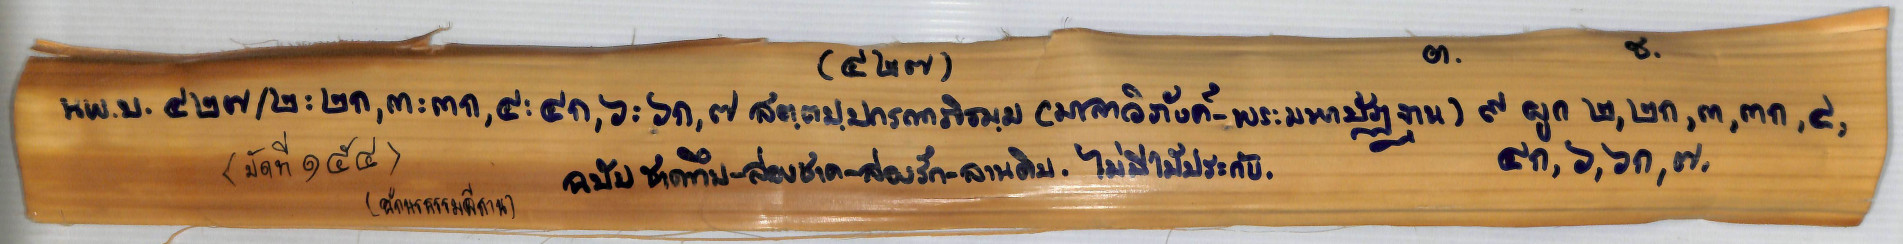 (๔๒๗) ๓. ช.
นพ.บ. ๔๒๗/๒: ๒ก, ๓: ๓ก, ๔: ๔ก, ๖: ๖ก, ๗ สตฺตปฺปกรณาภิธมฺม (มาลาวิภังค์-พระมหาปัฏฐาน) ๙ ผูก ๒, ๒ก, ๓, ๓ก, ๔,
<มัดที่ ๑๕๔> ฉบับ ชาดทึบ-ล่องชาด-ล่องรัก-ลานดิบ. ไม่มีไม้ประกับ. ๔ก, ๖, ๖ก, ๗.
(อักษรธรรมอีสาน)